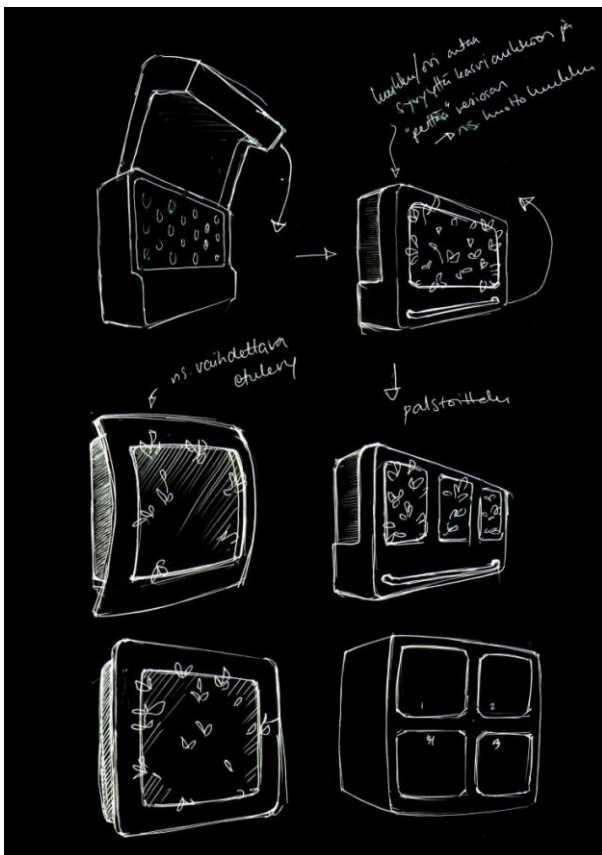 luukku/ovi antaa
syvyyttä kasviaukkoon ja
"peittää" vesiosan
→ ns. huoltoluukku
ns. vaihdettava
etulevy
palstoittelu
1 2